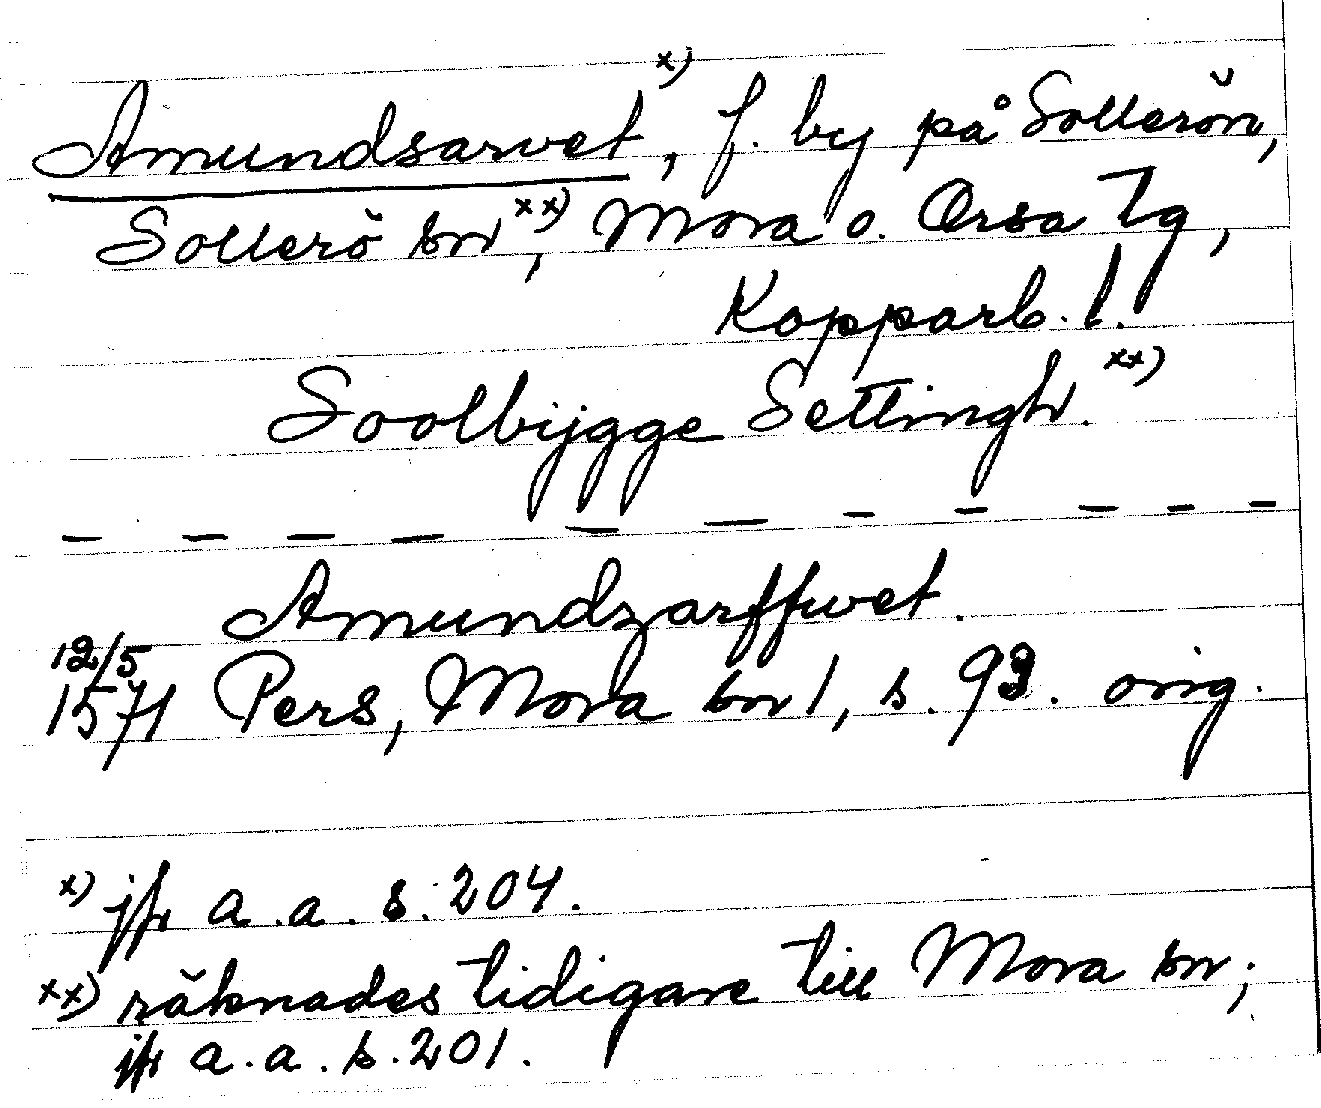 Amundsarvet x), f. by på Sollerön,
Sollerö sn xx), Mora o. Orsa tg,
Kopparb. l.
Soolbijgge Settingh. xx)
— — — — — — — — — — —
Amundzarffwet.
12/5
1571 Pers, Mora sn 1, s. 93. orig.
x) jfr a.a. s. 204.
xx) räknades tidigare till Mora sn;
jfr a.a. s. 201.